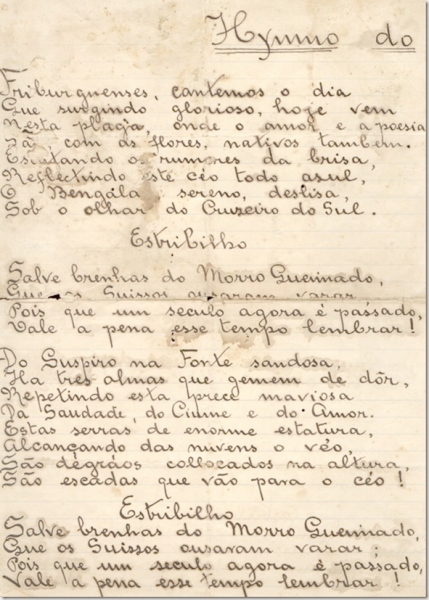 Hymno do
Friburguenses, cantemos o dia
Que surgindo glorioso, hoje vem
Nesta plaga, onde o amor e a poesia
São com as flores, nativos tambem.
Escutando o rumores da brisa,
Reflectindo este céo todo azul,
O Bengála sereno, deslisa,
Sob o olhar do Cruzeiro do Sul.
Estribilho
Salve brenhas do Morro Queimado,
Que os Suissos ousaram varar
Pois que um seculo agora é passado,
Vale a pena esse tempo lembrar!
Do Suspiro na Fonte saudosa,
Ha tres almas que gemem de dôr,
Repetindo esta prece maviosa
Da Saudade, do Ciume e do Amor.
Estas serras de enorme estatura,
Alcançando das nuvens o véo,
São degráos collocados na altura,
São escadas que vão para o céo!
Estribilho
Salve brenhas do Morro Queimado,
Que os Suissos ousaram varar;
Pois que um seculo agora é passado,
Vale a pena esse tempo lembrar!